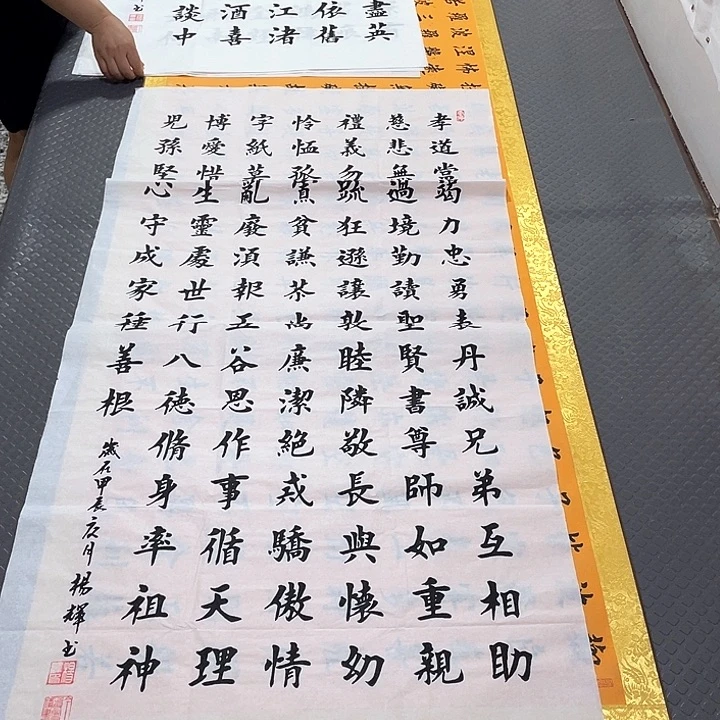 盡英
依舊
江渚
酒喜
談中
书
孝道當竭力忠勇表丹誠兄弟互相助
慈悲無過境勤讀聖賢書尊師如重親
禮義勿疏狂遜讓敦睦隣敬長與懷幼
怜恤孤寡貧謙恭尚廉潔絕戒驕傲情
字紙莫亂廢須報五谷恩作事循天理
博愛惜生靈處世行八德脩身率祖神
兒孫堅心守成家種善根
歲在甲辰夏月楊輝书